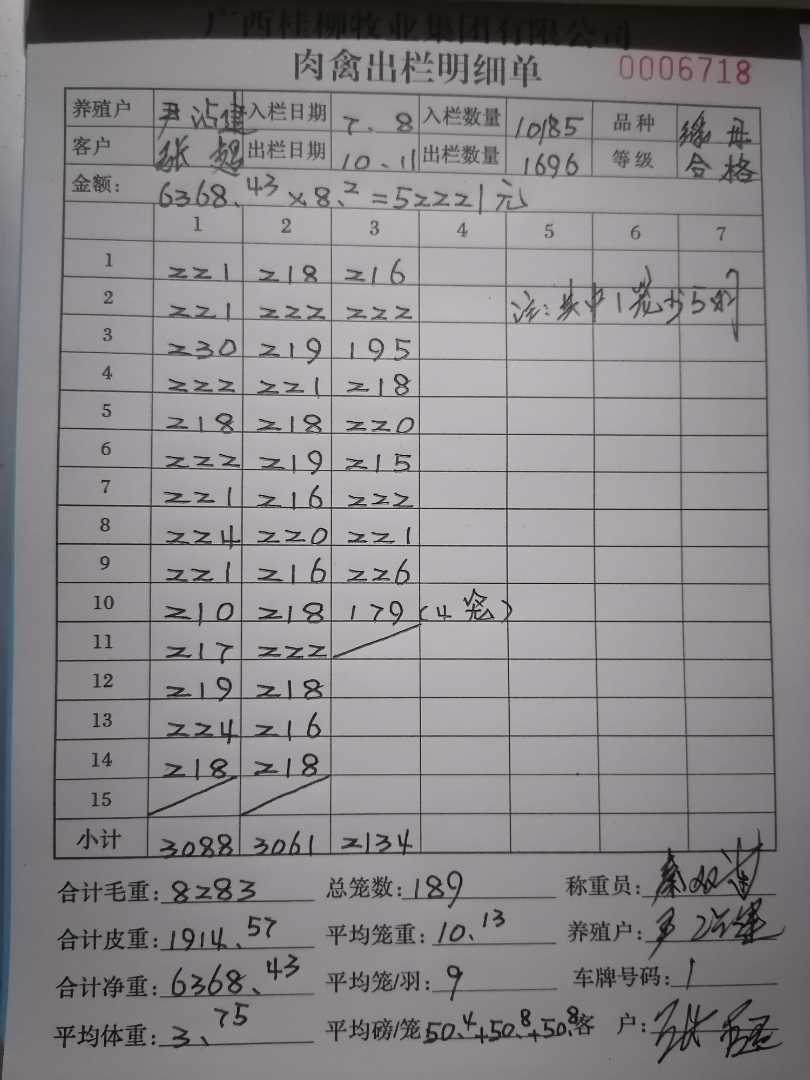 广西桂柳牧业集团有限公司
肉禽出栏明细单 0006718
养殖户 尹沾建 入栏日期 7、8 入栏数量 10185 品种
客户 张超 出栏日期 10、11 出栏数量 1696 等级 合格
金额: 6368、43×8、2=52221元
1 2 3 4 5 6 7
1 221 218 216
2 221 222 222 注:其中1笼少5
3 230 219 195
4 222 221 218
5 218 218 220
6 222 219 215
7 221 216 222
8 224 220 221
9 221 216 226
10 210 218 179(4笼)
11 217 222
12 219 218
13 224 216
14 218 218
15
小计 3088 3061 2134
合计毛重: 8283 总笼数: 189 称重员:
合计皮重: 1914、57 平均笼重: 10、13 养殖户: 尹沾建
合计净重: 6368、43 平均笼/羽: 9 车牌号码: 1
平均体重: 3、75 平均磅/笼 50、4+50、8+50、8 客户: 张超